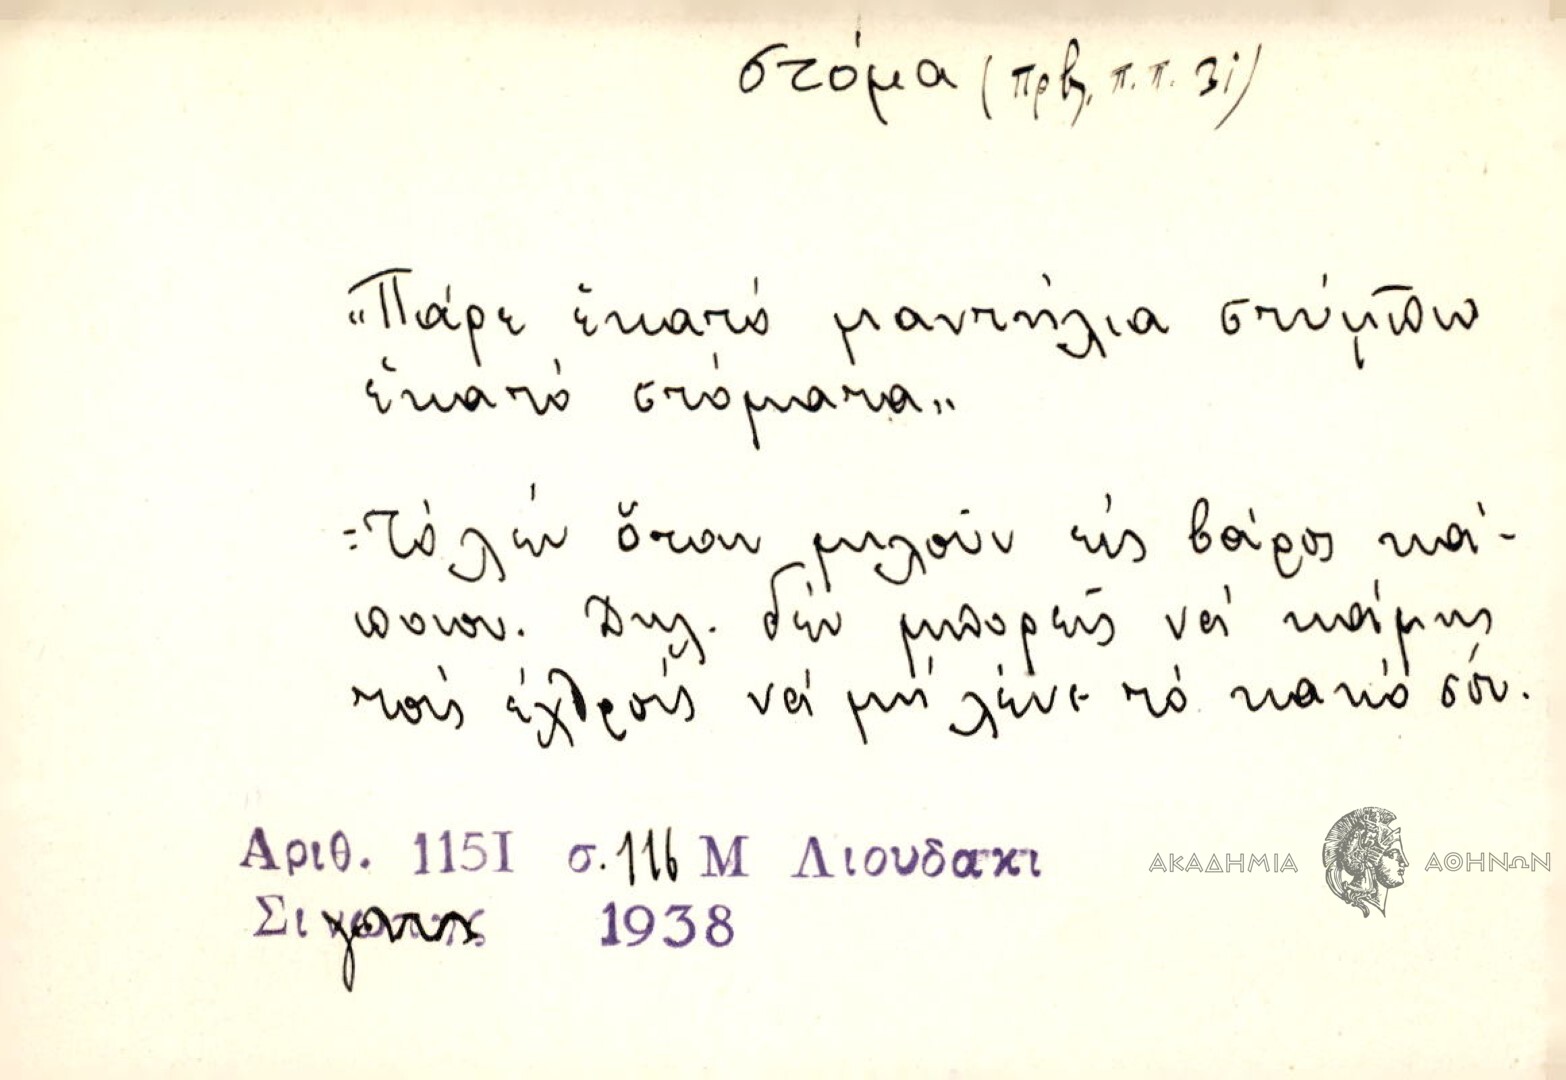 στόμα (πρβ. π.π. 3i)
"Πάρε ἑκατό μαντήλια στύμπω
ἑκατό στόματα"
=Τό λέν ὅταν μιλοῦν εἰς βάρος κά-
ποιου. Δηλ. δέν μπορεῖς νά κάμης
τούς ἐχθρούς νά μή λένε τό κακό σου.
Αριθ. 1151 σ. 116 Μ Λιουδακι
1938
ΑΚΑΔΗΜΙΑ ΑΘΗΝΩΝ